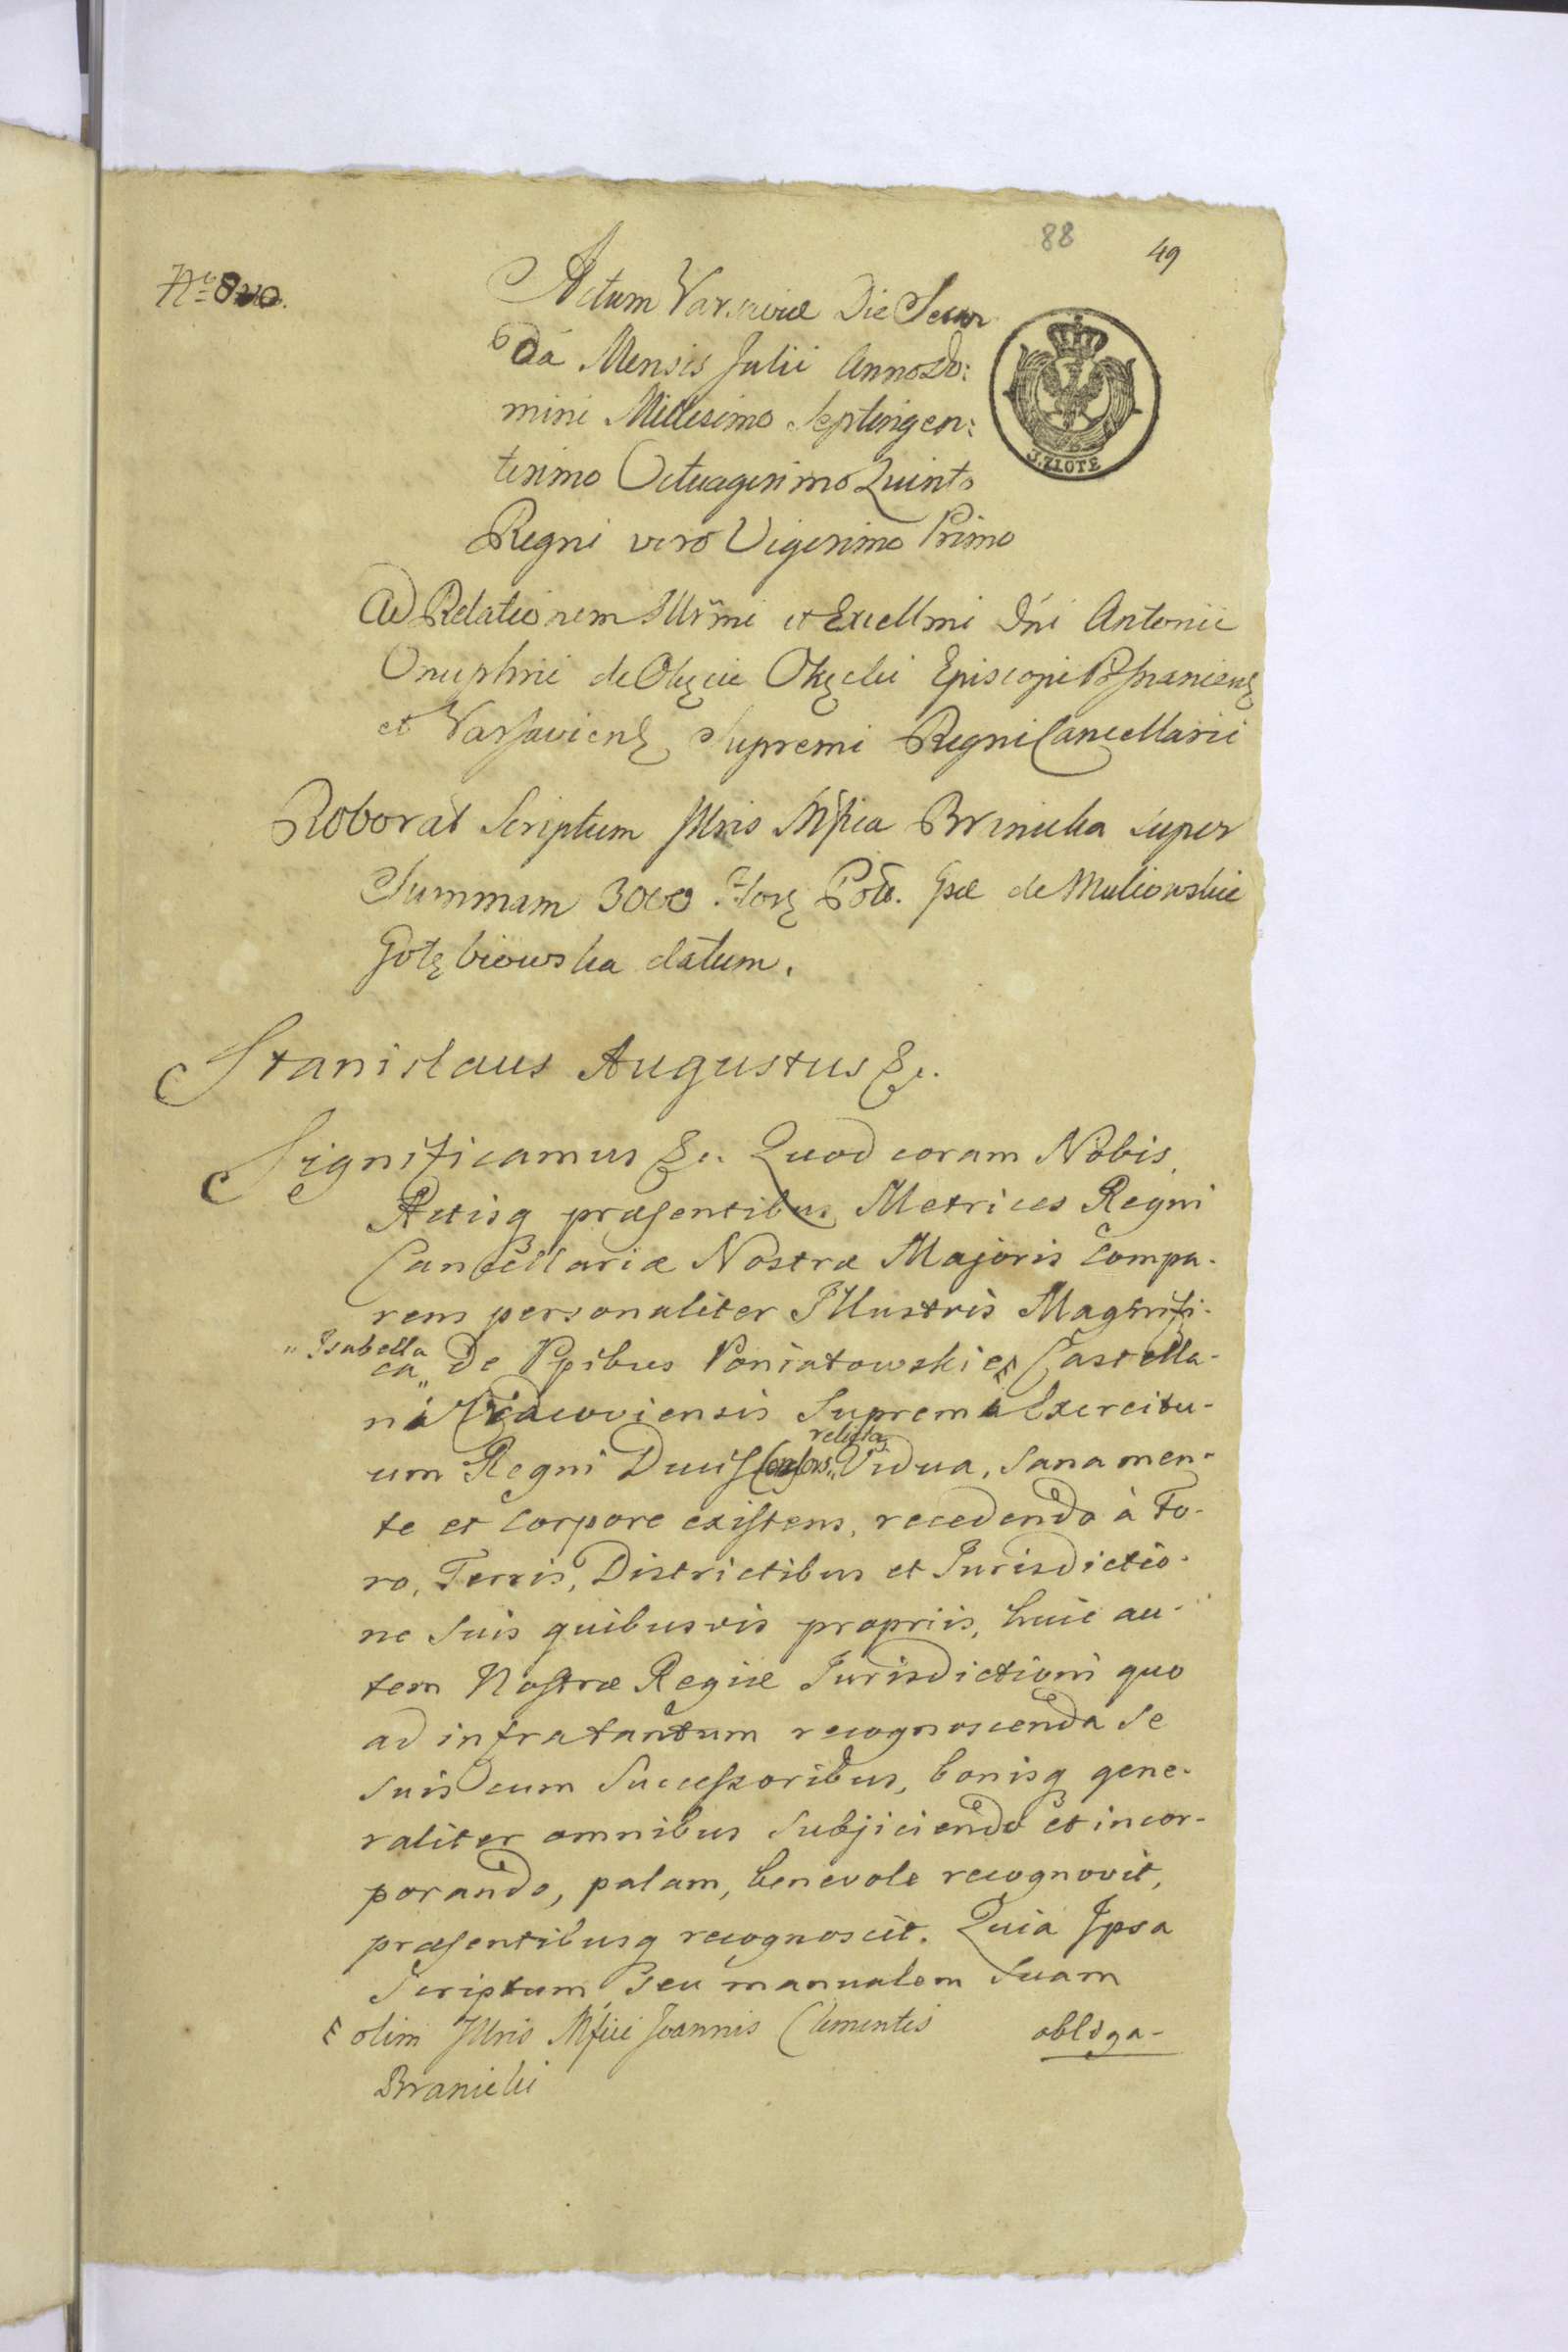 88
49
No 8vo.
Actum Varsaviæ Die Secun
da Mensis Julii Anno Do:
mini Millesimo Septingen:
tesimo Octuagesimo Quinto
Regni vero Vigesimo Primo
3. ZŁOTE
Ad Relationem Illrmi et Excellmi Dni Antonii
Onuphrii de Okęcie Okęcki Episcopi Posnaniens
et Varsaviens Supremi Regni Cancellarii
Roborat Scriptum Illris Mfica Branicka super
Summam 3000 Flor Pol. Gsæ de
Gołębiowska datum.
Stanislaus Augustus &c.
Significamus &c. Quod coram Nobis,
Actisq præsentibus Metrices Regni
Cancellariæ Nostræ Majoris compa-
rens personaliter Illustris Magnifi-
"Isabella
ca" De Ppibus Poniatowskie Castella-
ni Cracoviensis Supremi Exercitu-
relicta
um Regni Ducis Consors" Vidua, sana men-
te et corpore existens, recedendo à Fo-
ro, Terris, Districtibus et Jurisdictio-
ne suis quibusvis propriis, huic au-
tem Nostræ Regiæ Jurisdictioni quo
ad infratantum recognoscenda se
suis cum Successoribus, bonisq gene-
raliter omnibus subjiciendo et incor-
porando, palam, benevole recognovit,
præsentibusq recognoscit. Quia Ipsa
Scriptum seu manualem suam
olim Illris Mfici Joannis Clementis
obliga-
Branicki